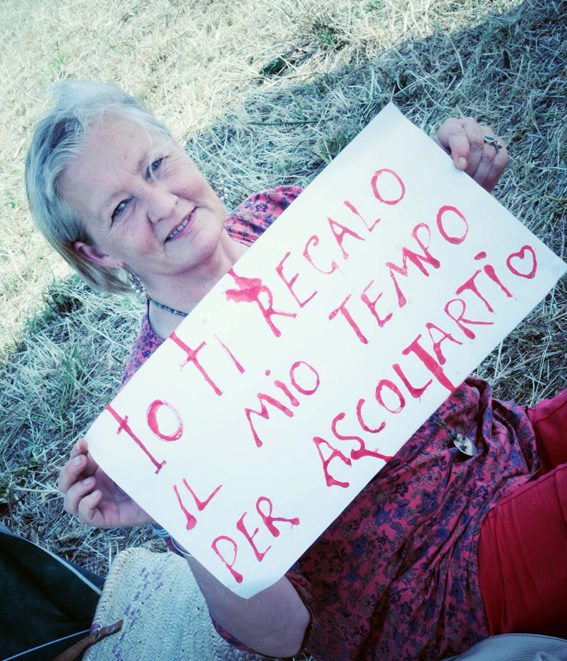 IO TI REGALO
IL MIO TEMPO
PER ASCOLTARTI♡